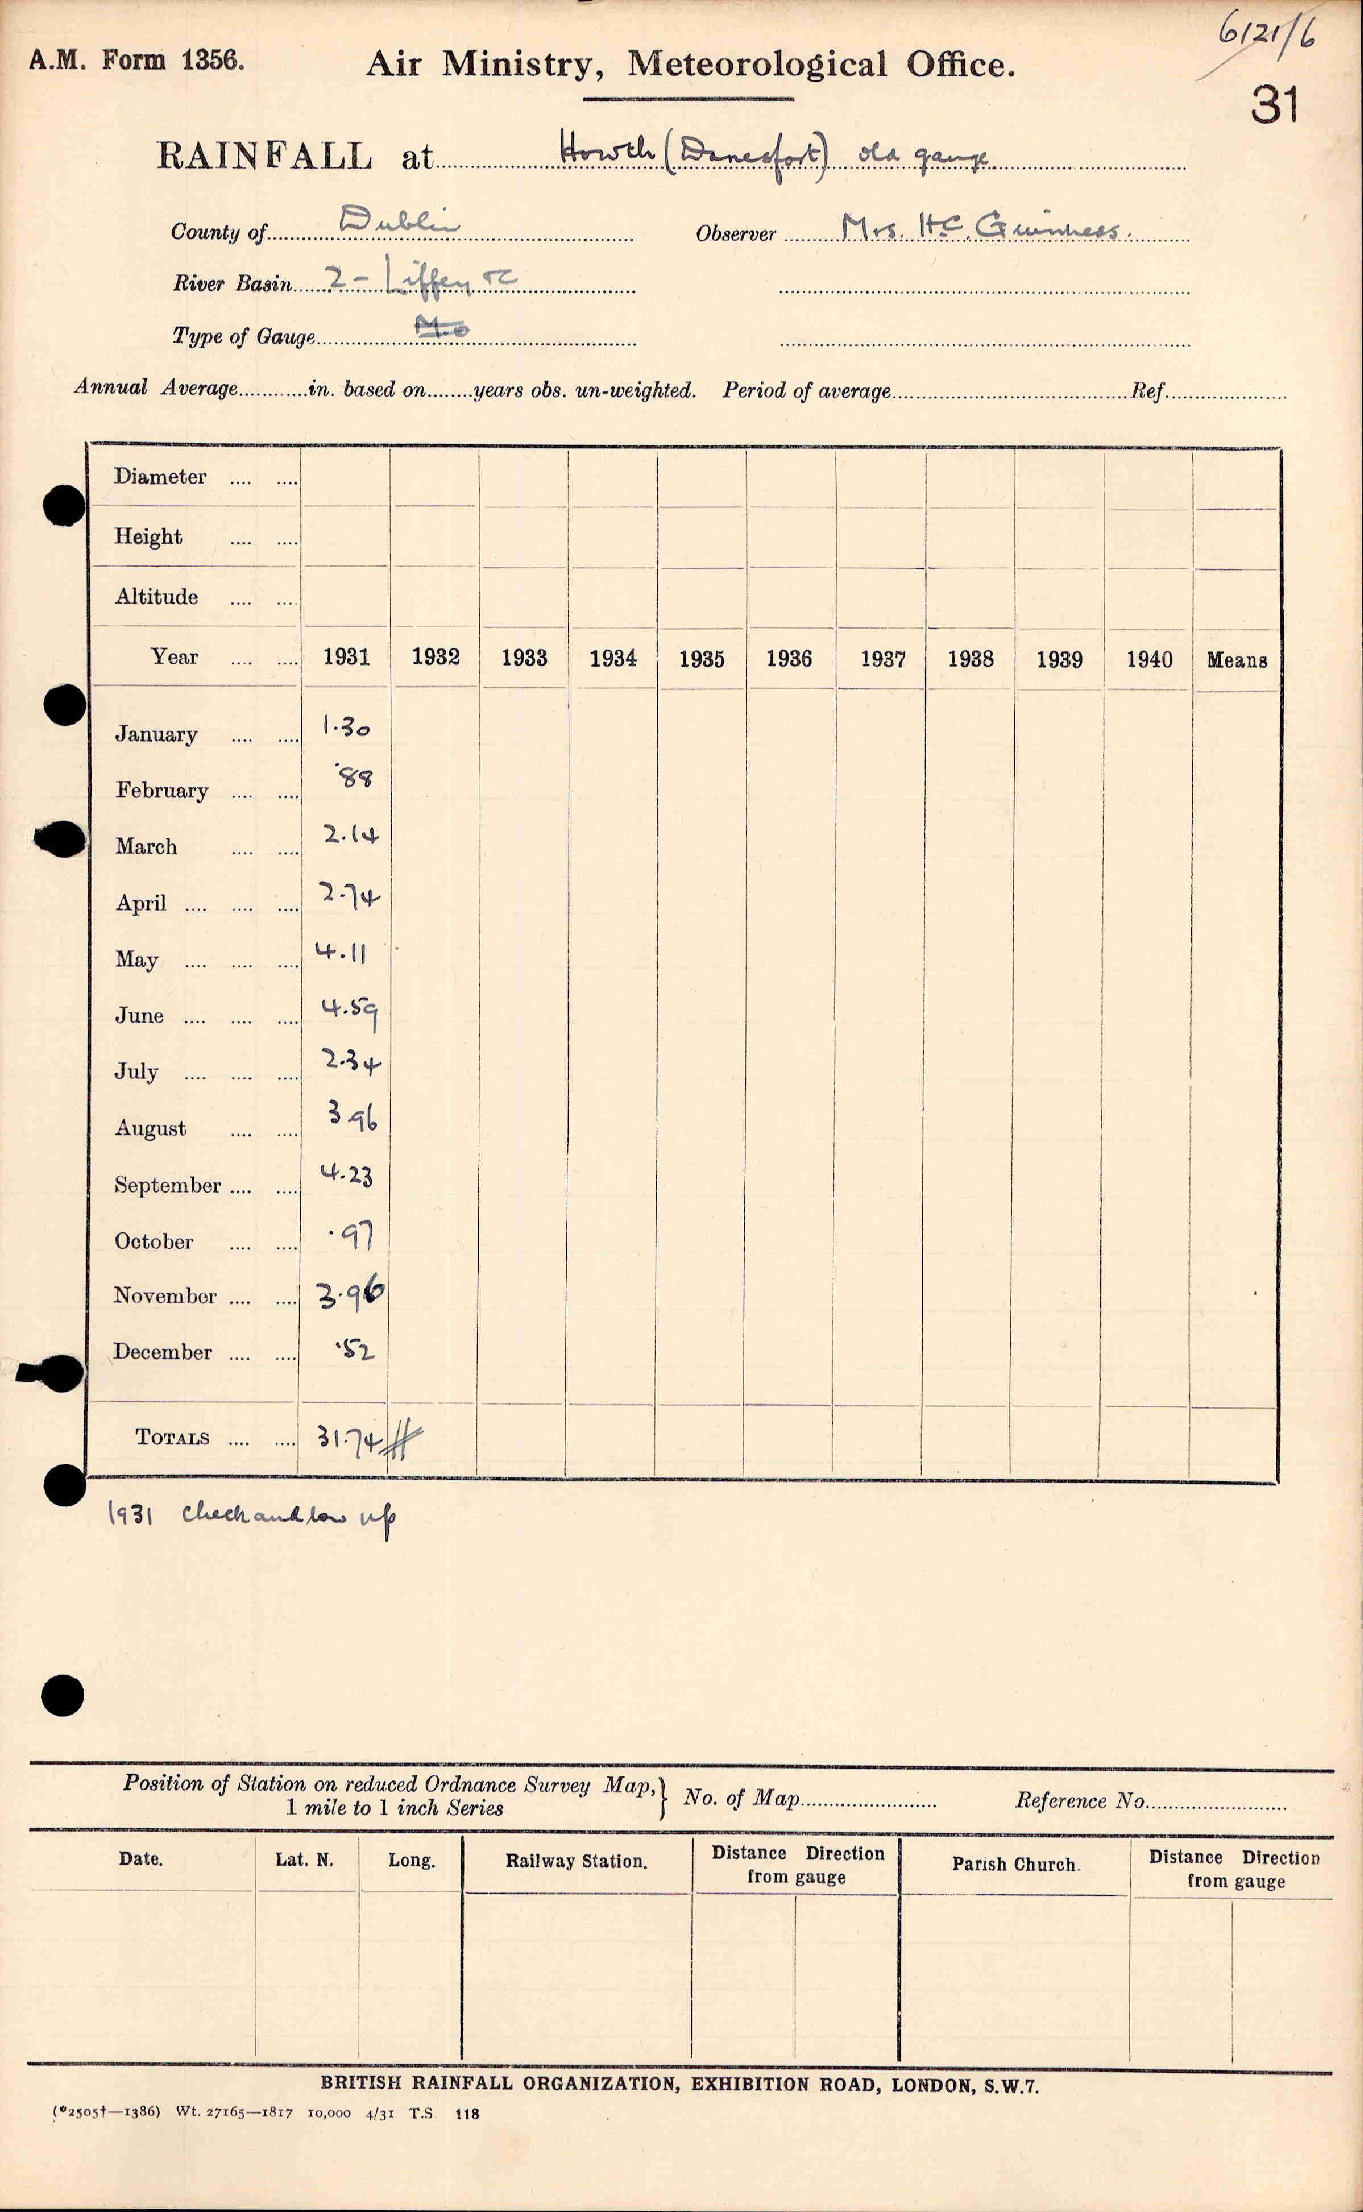 6121/6
A.M. Form 1356. Air Ministry, Meteorological Office.
31
RAINFALL at Howth (Danesfort) old gauge
County of Dublin Observer Mrs. H.C. Guinness.
River Basin 2 - Liffey &c
Type of Gauge Mo
Annual Average in. based on years obs. un-weighted. Period of average Ref.
Diameter .... ....
Height .... ....
Altitude .... ....
Year .... .... 1931 1932 1933 1934 1935 1936 1937 1938 1939 1940 Means
January .... .... 1.30
February .... .... .88
March .... .... 2.14
April .... .... .... 2.74
May .... .... .... 4.11
June .... .... .... 4.59
July .... .... .... 2.34
August .... .... 3.96
September .... .... 4.23
October .... .... .97
November .... .... 3.96
December .... .... .52
TOTALS .... .... 31.74
1931 check and low up
Position of Station on reduced Ordnance Survey Map, } No. of Map Reference No.
1 mile to 1 inch Series
Date. Lat. N. Long. Railway Station. Distance Direction from gauge Parish Church. Distance Direction from gauge
BRITISH RAINFALL ORGANIZATION, EXHIBITION ROAD, LONDON, S.W.7.
(*2505†—1386) Wt. 27165—1817 10,000 4/31 T.S. 118